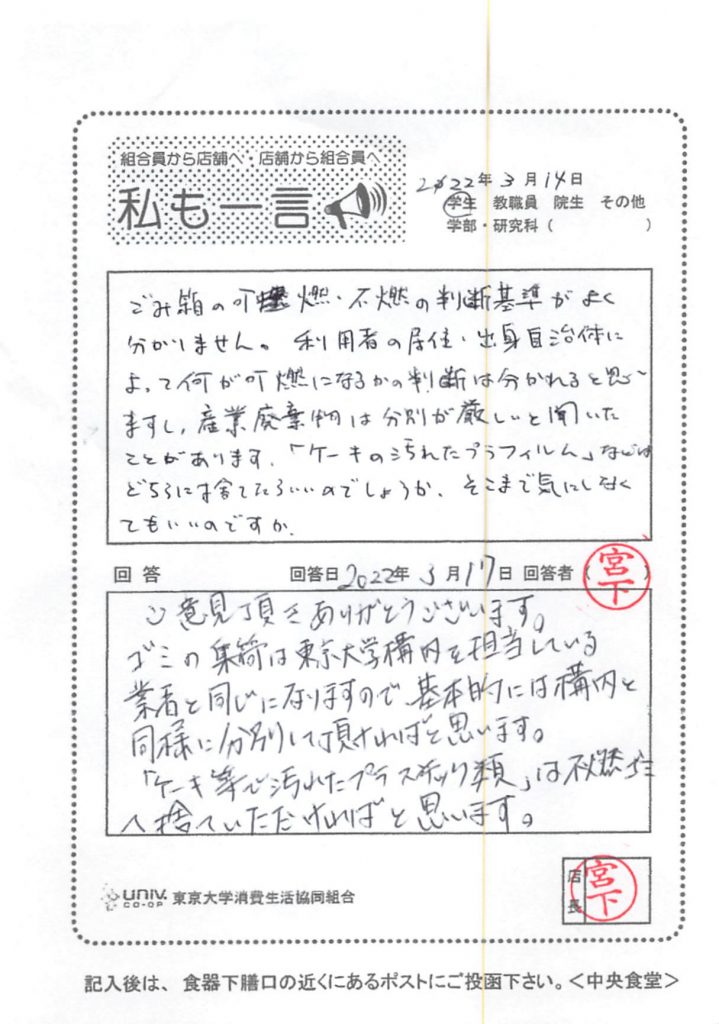 組合員から店舗へ・店舗から組合員へ
私も一言
2022年3月14日
学生 教職員 院生 その他
学部・研究科（ ）
ごみ箱の可燃・不燃の判断基準がよく
分かりません。利用者の居住・出身自治体に
よって何が可燃になるかの判断は分かれると思い
ますし、産業廃棄物は分別が厳しいと聞いた
ことがあります。「ケーキの汚れたプラフィルム」などは
どちらに捨てたらいいのでしょうか。そこまで気にしなく
てもいいのですか。
回答 回答日2022年3月17日 回答者（宮下）
ご意見頂きありがとうございます。
ゴミの集荷は東京大学構内を担当している
業者と同じになりますので、基本的には構内と
同様に分別して頂ければと思います。
「ケーキ等で汚れたプラスチック類」は不燃ゴミ
へ捨てていただければと思います。
univ. CO-OP 東京大学消費生活協同組合
店長 宮下
記入後は、食器下膳口の近くにあるポストにご投函下さい。＜中央食堂＞